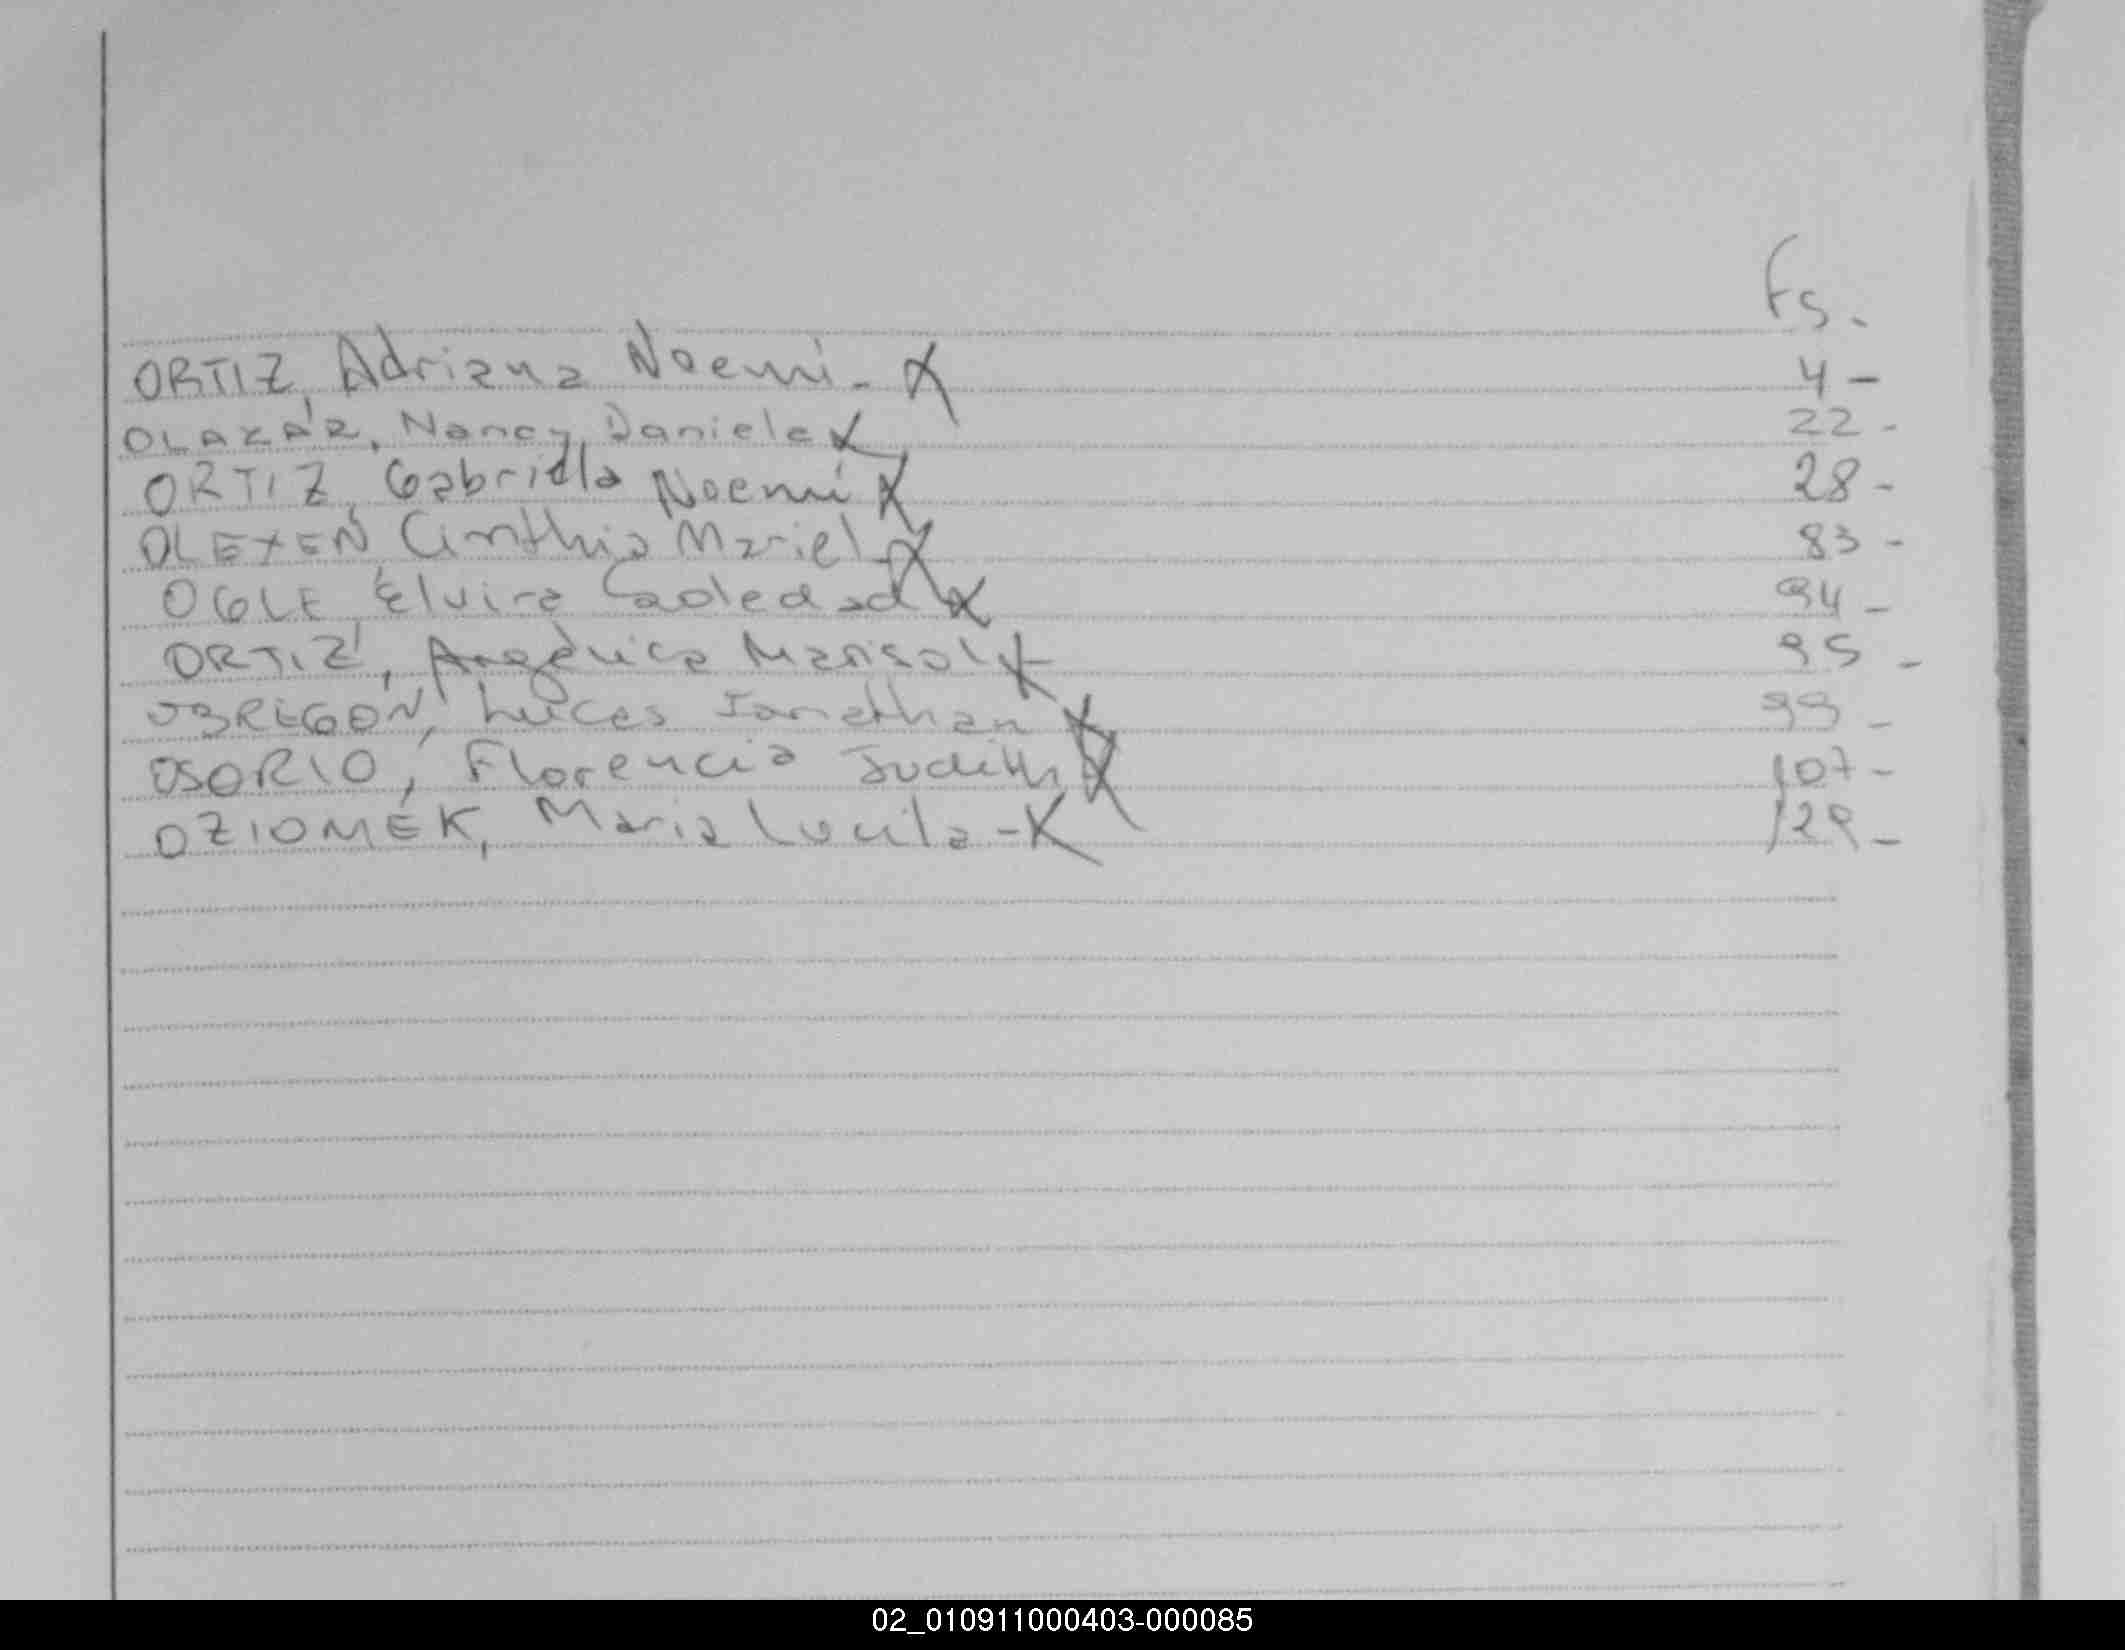 Fs.
ORTIZ, Adriana Noemi. X 4-
OLAZAR, Nancy Daniela X 22-
ORTIZ, Gabriella Noemi X 28-
OLEXEN Cinthia Mariel X 83-
OGLE Elvira Soledad X 94-
ORTIZ, Angelica Marisol X 95-
OBREGÓN, Lucas Jonathan X 99-
OSORIO, Florencia Judith X 107-
OZIOMEK, Maria Lucila-X 129-
02_010911000403-000085